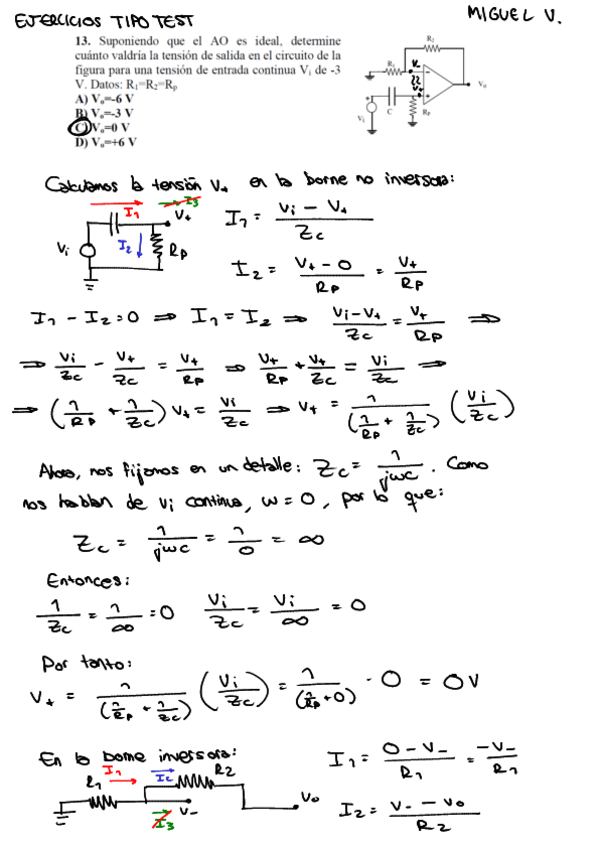 EJERCICIOS TIPO TEST
MIGUEL V.
13. Suponiendo que el AO es ideal, determine
cuánto valdría la tensión de salida en el circuito de la
figura para una tensión de entrada continua Vi de -3
V. Datos: R1=R2=Rp
A) Vo=-6 V
B) Vo=-3 V
C) Vo=0 V
D) Vo=+6 V
R2
R1
V-
V+
Vo
Vi
C
Rp
Calculamos la tensión V+ en la borne no inversora:
I1 I3 V+
Vi I2 Rp
I1 = (Vi - V+)/Zc
I2 = (V+ - 0)/Rp = V+/Rp
I1 - I2 = 0 ⇒ I1 = I2 ⇒ (Vi - V+)/Zc = V+/Rp ⇒
⇒ Vi/Zc - V+/Zc = V+/Rp ⇒ V+/Rp + V+/Zc = Vi/Zc ⇒
⇒ (1/Rp + 1/Zc) V+ = Vi/Zc ⇒ V+ = 1/(1/Rp + 1/Zc) (Vi/Zc)
Ahora, nos fijamos en un detalle: Zc = 1/jwc. Como
nos hablan de Vi continua, w = 0, por lo que:
Zc = 1/jwc = 1/0 = ∞
Entonces:
1/Zc = 1/∞ = 0 Vi/Zc = Vi/∞ = 0
Por tanto:
V+ = 1/(1/Rp + 1/Zc) (Vi/Zc) = 1/(1/Rp + 0) · 0 = 0V
En la borne inversora:
R1 I1 I2 R2
V- I3 Vo
I1 = (0 - V-)/R1 = -V-/R1
I2 = (V- - Vo)/R2